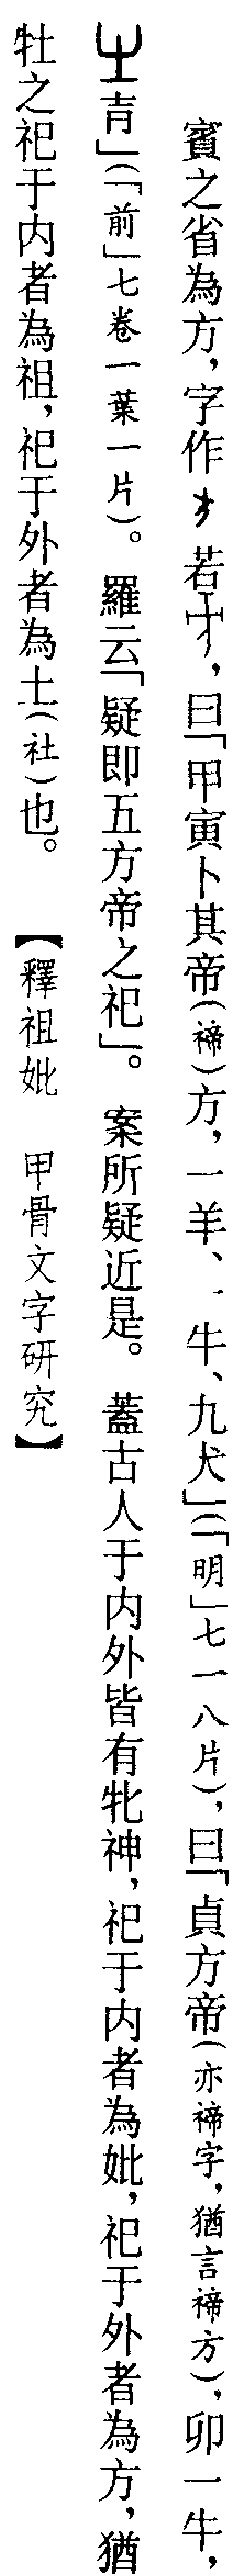 賓之省為方，字作 若 ，曰「甲寅卜其帝（禘）方，一羊、一牛、九犬」（「明」七一八片），曰「貞方帝（亦禘字，猶言禘方），卯一牛，
㞢𠱾」（「前」七卷一葉一片）。 羅云「疑即五方帝之祀」。 案所疑近是。 蓋古人于内外皆有牝神，祀于内者為妣，祀于外者為方，猶
牡之祀于内者為祖，祀于外者為土（社）也。 【釋祖妣 甲骨文字研究】